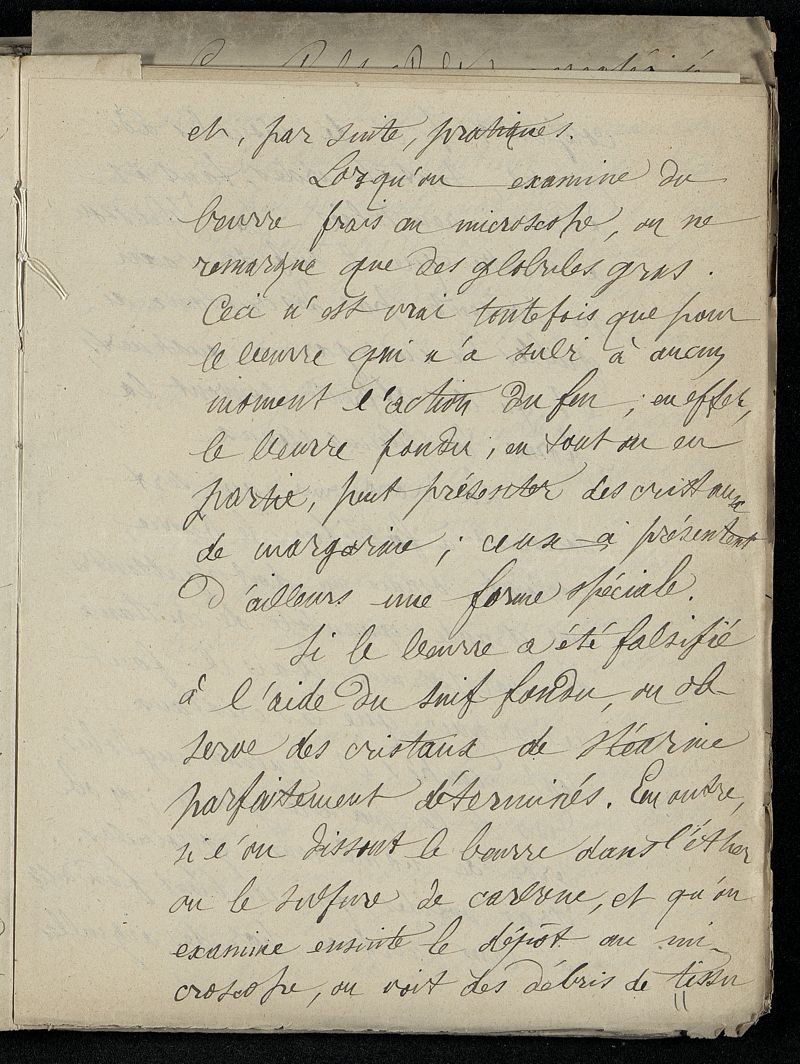 et, par suite, pratiques.
Lorsqu'on examine du
beurre frais au microscope, on ne
remarque que des globules gras.
Ceci n'est vrai toutefois que pour
le beurre qui n'a subi à aucun
moment l'action du feu ; en effet,
le beurre fondu, en tout ou en
partie, peut présenter des cristaux
de margarine ; ceux-ci présentent
d'ailleurs une forme spéciale.
Si le beurre a été falsifié
à l'aide du suif fondu, on ob-
serve des cristaux de stéarine
parfaitement déterminés. En outre,
si l'on dissout le beurre dans l'éther
ou le sulfure de carbone, et qu'on
examine ensuite le dépôt au mi-
croscope, on voit des débris de tissu